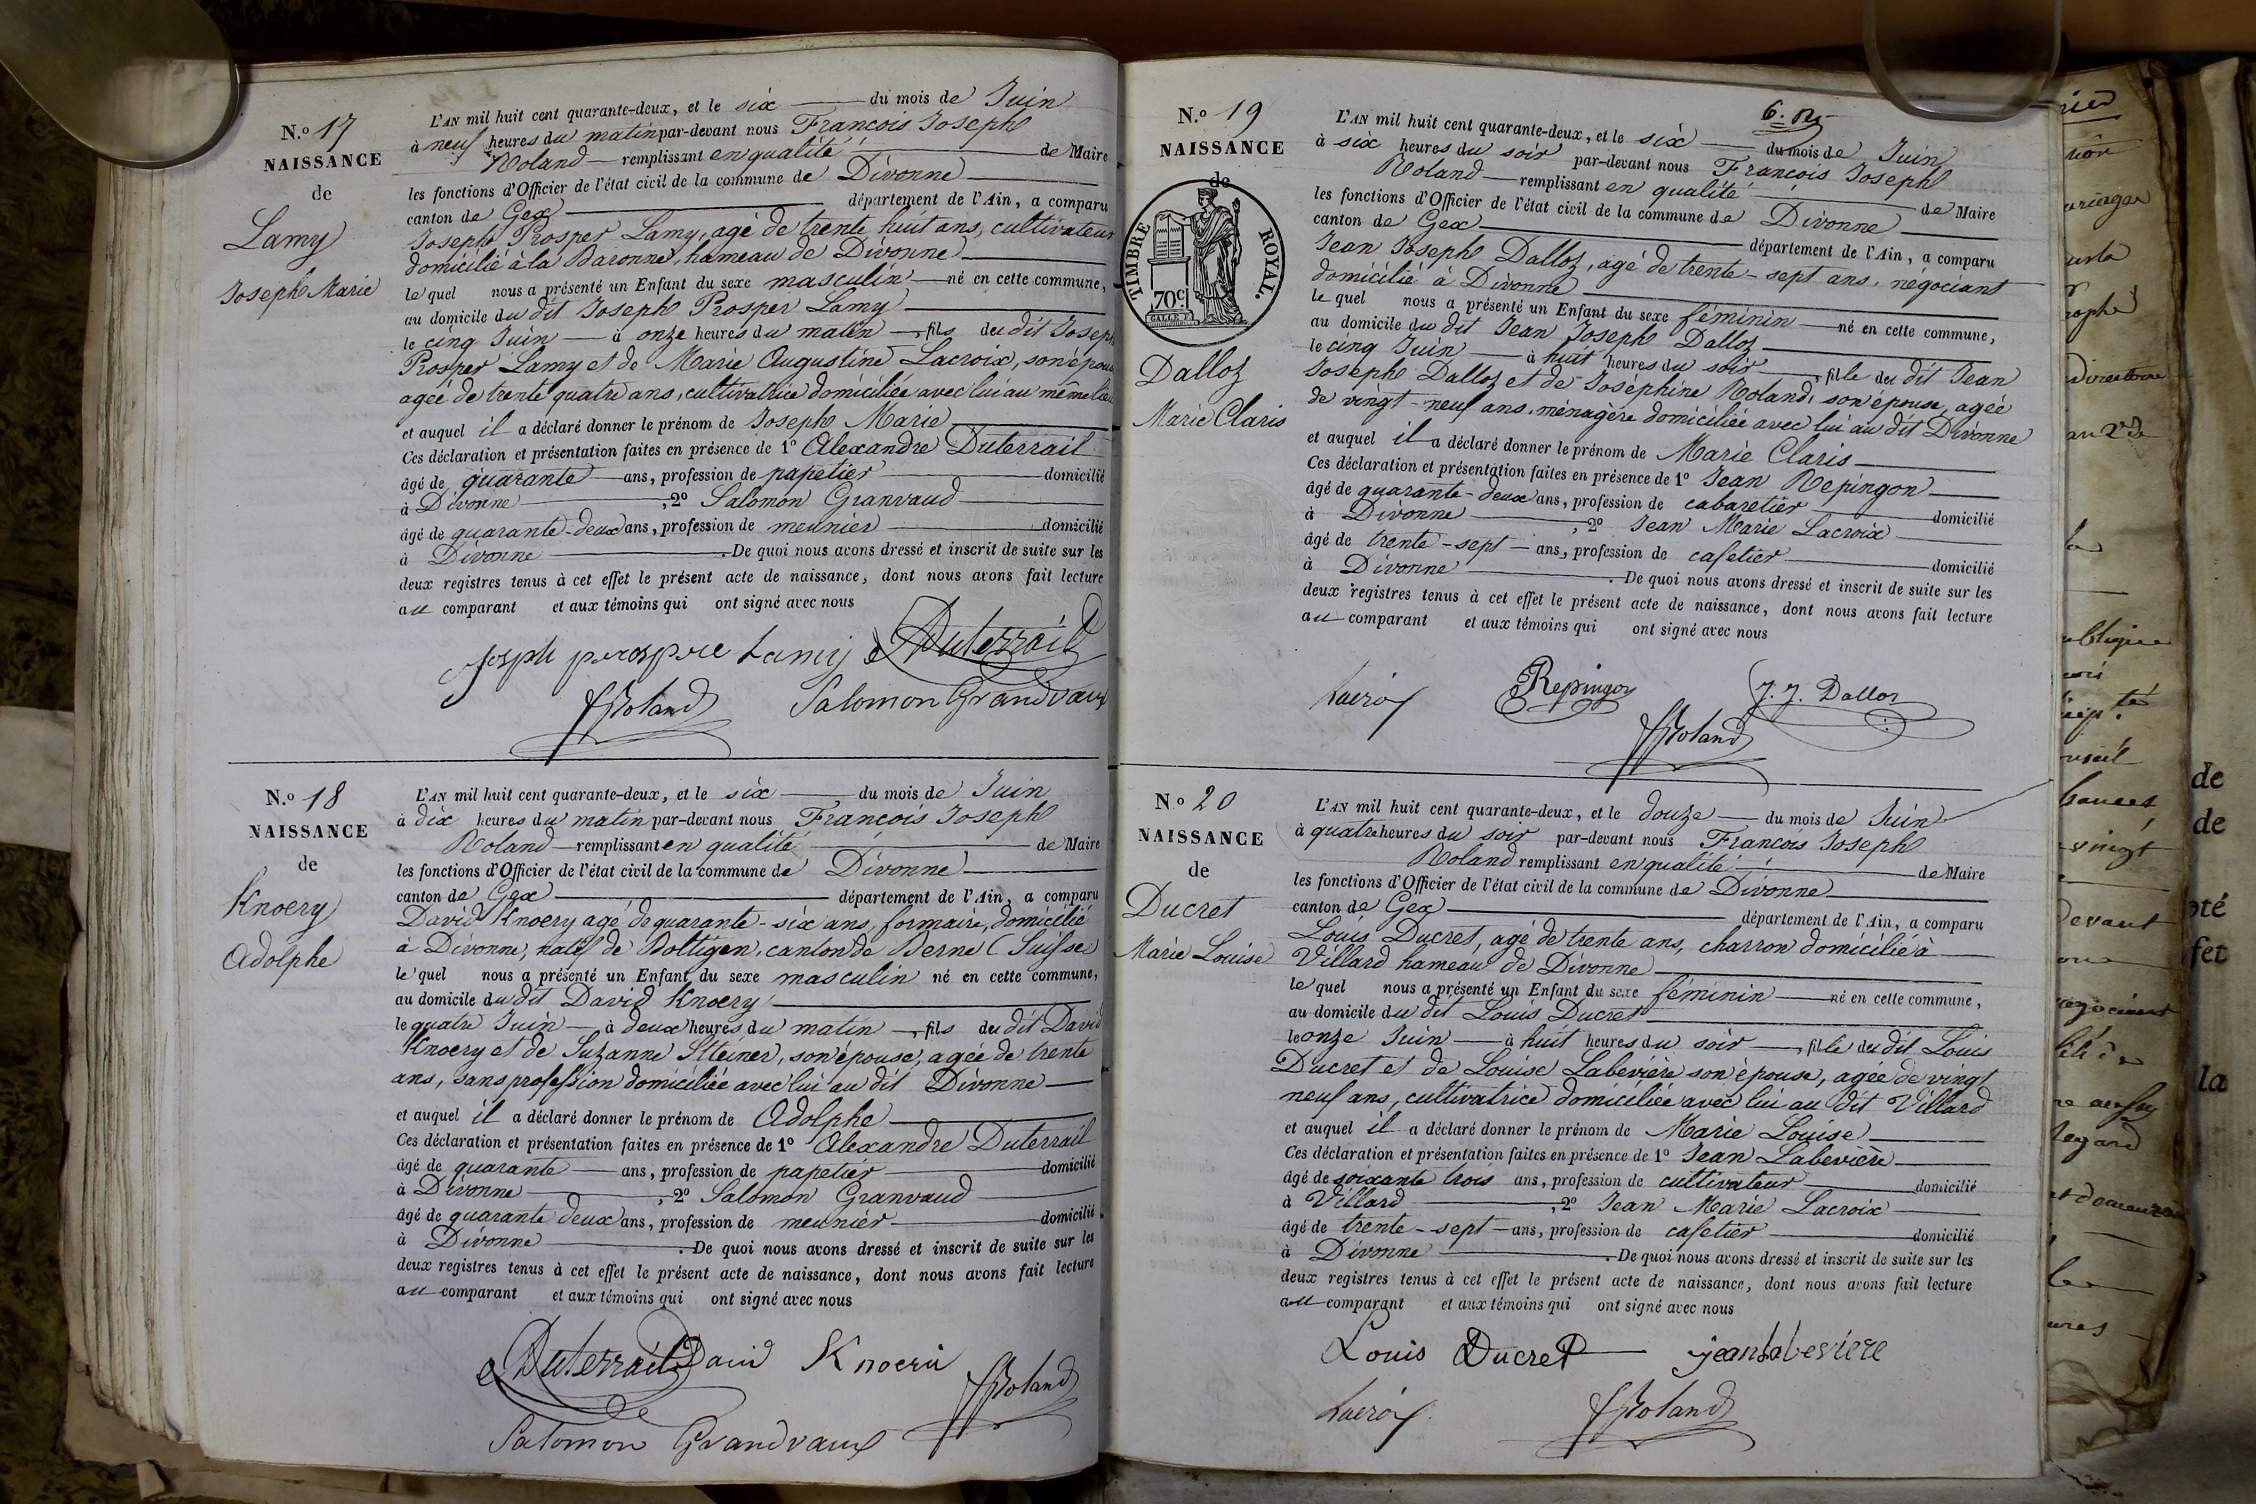 N.o 17
NAISSANCE
de
Lamy
Joseph Marie
L'AN mil huit cent quarante-deux, et le six du mois de Juin
à neuf heures du matin par-devant nous François Joseph
Roland remplissant en qualité de Maire
les fonctions d'Officier de l'état civil de la commune de Divonne
canton de Gex département de l'Ain, a comparu
Joseph Prosper Lamy, agé de trente huit ans, cultivateur
domicilié à la Baronne, hameau de Divonne
le quel nous a présenté un Enfant du sexe masculin né en cette commune,
au domicile du dit Joseph Prosper Lamy
le cinq Juin à onze heures du matin, fils du dit Joseph
Prosper Lamy et de Marie Augustine Lacroix, son épouse
agée de trente quatre ans, cultivatrice domiciliée avec lui au même lieu
et auquel il a déclaré donner le prénom de Joseph Marie
Ces déclaration et présentation faites en présence de 1o Alexandre Duterrail
âgé de quarante ans, profession de papetier domicilié
à Divonne, 2o Salomon Granvaud
âgé de quarante-deux ans, profession de meunier domicilié
à Divonne. De quoi nous avons dressé et inscrit de suite sur les
deux registres tenus à cet effet le présent acte de naissance, dont nous avons fait lecture
au comparant et aux témoins qui ont signé avec nous
Joseph prospre Lamy Duterrail
Roland Salomon Grandvaux
N.o 18
NAISSANCE
de
Knoery
Adolphe
L'AN mil huit cent quarante-deux, et le six du mois de Juin
à dix heures du matin par-devant nous François Joseph
Roland remplissant en qualité de Maire
les fonctions d'Officier de l'état civil de la commune de Divonne
canton de Gex département de l'Ain, a comparu
David Knoery agé de quarante-six ans, formaire, domicilié
à Divonne, natif de Boltigen, canton de Berne (Suisse)
le quel nous a présenté un Enfant du sexe masculin né en cette commune,
au domicile du dit David Knoery
le quatre Juin à deux heures du matin, fils du dit David
Knoery et de Suzanne Stteiner, son épouse, agée de trente
ans, sans profession domiciliée avec lui au dit Divonne
et auquel il a déclaré donner le prénom de Adolphe
Ces déclaration et présentation faites en présence de 1o Alexandre Duterrail
âgé de quarante ans, profession de papetier domicilié
à Divonne, 2o Salomon Granvaud
âgé de quarante deux ans, profession de meunier domicilié
à Divonne. De quoi nous avons dressé et inscrit de suite sur les
deux registres tenus à cet effet le présent acte de naissance, dont nous avons fait lecture
au comparant et aux témoins qui ont signé avec nous
Duterrail David Knoeri Roland
Salomon Grandvaux
6.
N.o 19
NAISSANCE
de
TIMBRE ROYAL.
70c.
Dalloz
Marie Claris
L'AN mil huit cent quarante-deux, et le six du mois de Juin
à six heures du soir par-devant nous François Joseph
Roland remplissant en qualité de Maire
les fonctions d'Officier de l'état civil de la commune de Divonne
canton de Gex département de l'Ain, a comparu
Jean Joseph Dalloz, agé de trente-sept ans, négociant
domicilié à Divonne
le quel nous a présenté un Enfant du sexe féminin né en cette commune,
au domicile du dit Jean Joseph Dalloz
le cinq Juin à huit heures du soir, fille du dit Jean
Joseph Dalloz et de Joséphine Roland, son épouse, agée
de vingt-neuf ans, ménagère domiciliée avec lui au dit Divonne
et auquel il a déclaré donner le prénom de Marie Claris
Ces déclaration et présentation faites en présence de 1o Jean Repingon
âgé de quarante-deux ans, profession de cabaretier domicilié
à Divonne, 2o Jean Marie Lacroix
âgé de trente-sept ans, profession de cafetier domicilié
à Divonne. De quoi nous avons dressé et inscrit de suite sur les
deux registres tenus à cet effet le présent acte de naissance, dont nous avons fait lecture
au comparant et aux témoins qui ont signé avec nous
Lacroix Repingon J. J. Dalloz
Roland
No 20
NAISSANCE
de
Ducret
Marie Louise
L'AN mil huit cent quarante-deux, et le douze du mois de Juin
à quatre heures du soir par-devant nous François Joseph
Roland remplissant en qualité de Maire
les fonctions d'Officier de l'état civil de la commune de Divonne
canton de Gex département de l'Ain, a comparu
Louis Ducret, agé de trente ans, charron domicilié à
Villard hameau de Divonne
le quel nous a présenté un Enfant du sexe féminin né en cette commune,
au domicile du dit Louis Ducret
le onze Juin à huit heures du soir, fille du dit Louis
Ducret et de Louise Labevière son épouse, agée de vingt
neuf ans, cultivatrice domiciliée avec lui au dit Villard
et auquel il a déclaré donner le prénom de Marie Louise
Ces déclaration et présentation faites en présence de 1o Jean Labevière
âgé de soixante trois ans, profession de cultivateur domicilié
à Villard, 2o Jean Marie Lacroix
âgé de trente-sept ans, profession de cafetier domicilié
à Divonne. De quoi nous avons dressé et inscrit de suite sur les
deux registres tenus à cet effet le présent acte de naissance, dont nous avons fait lecture
au comparant et aux témoins qui ont signé avec nous
Louis Ducret jean labeviere
Lacroix Roland
de
de
la